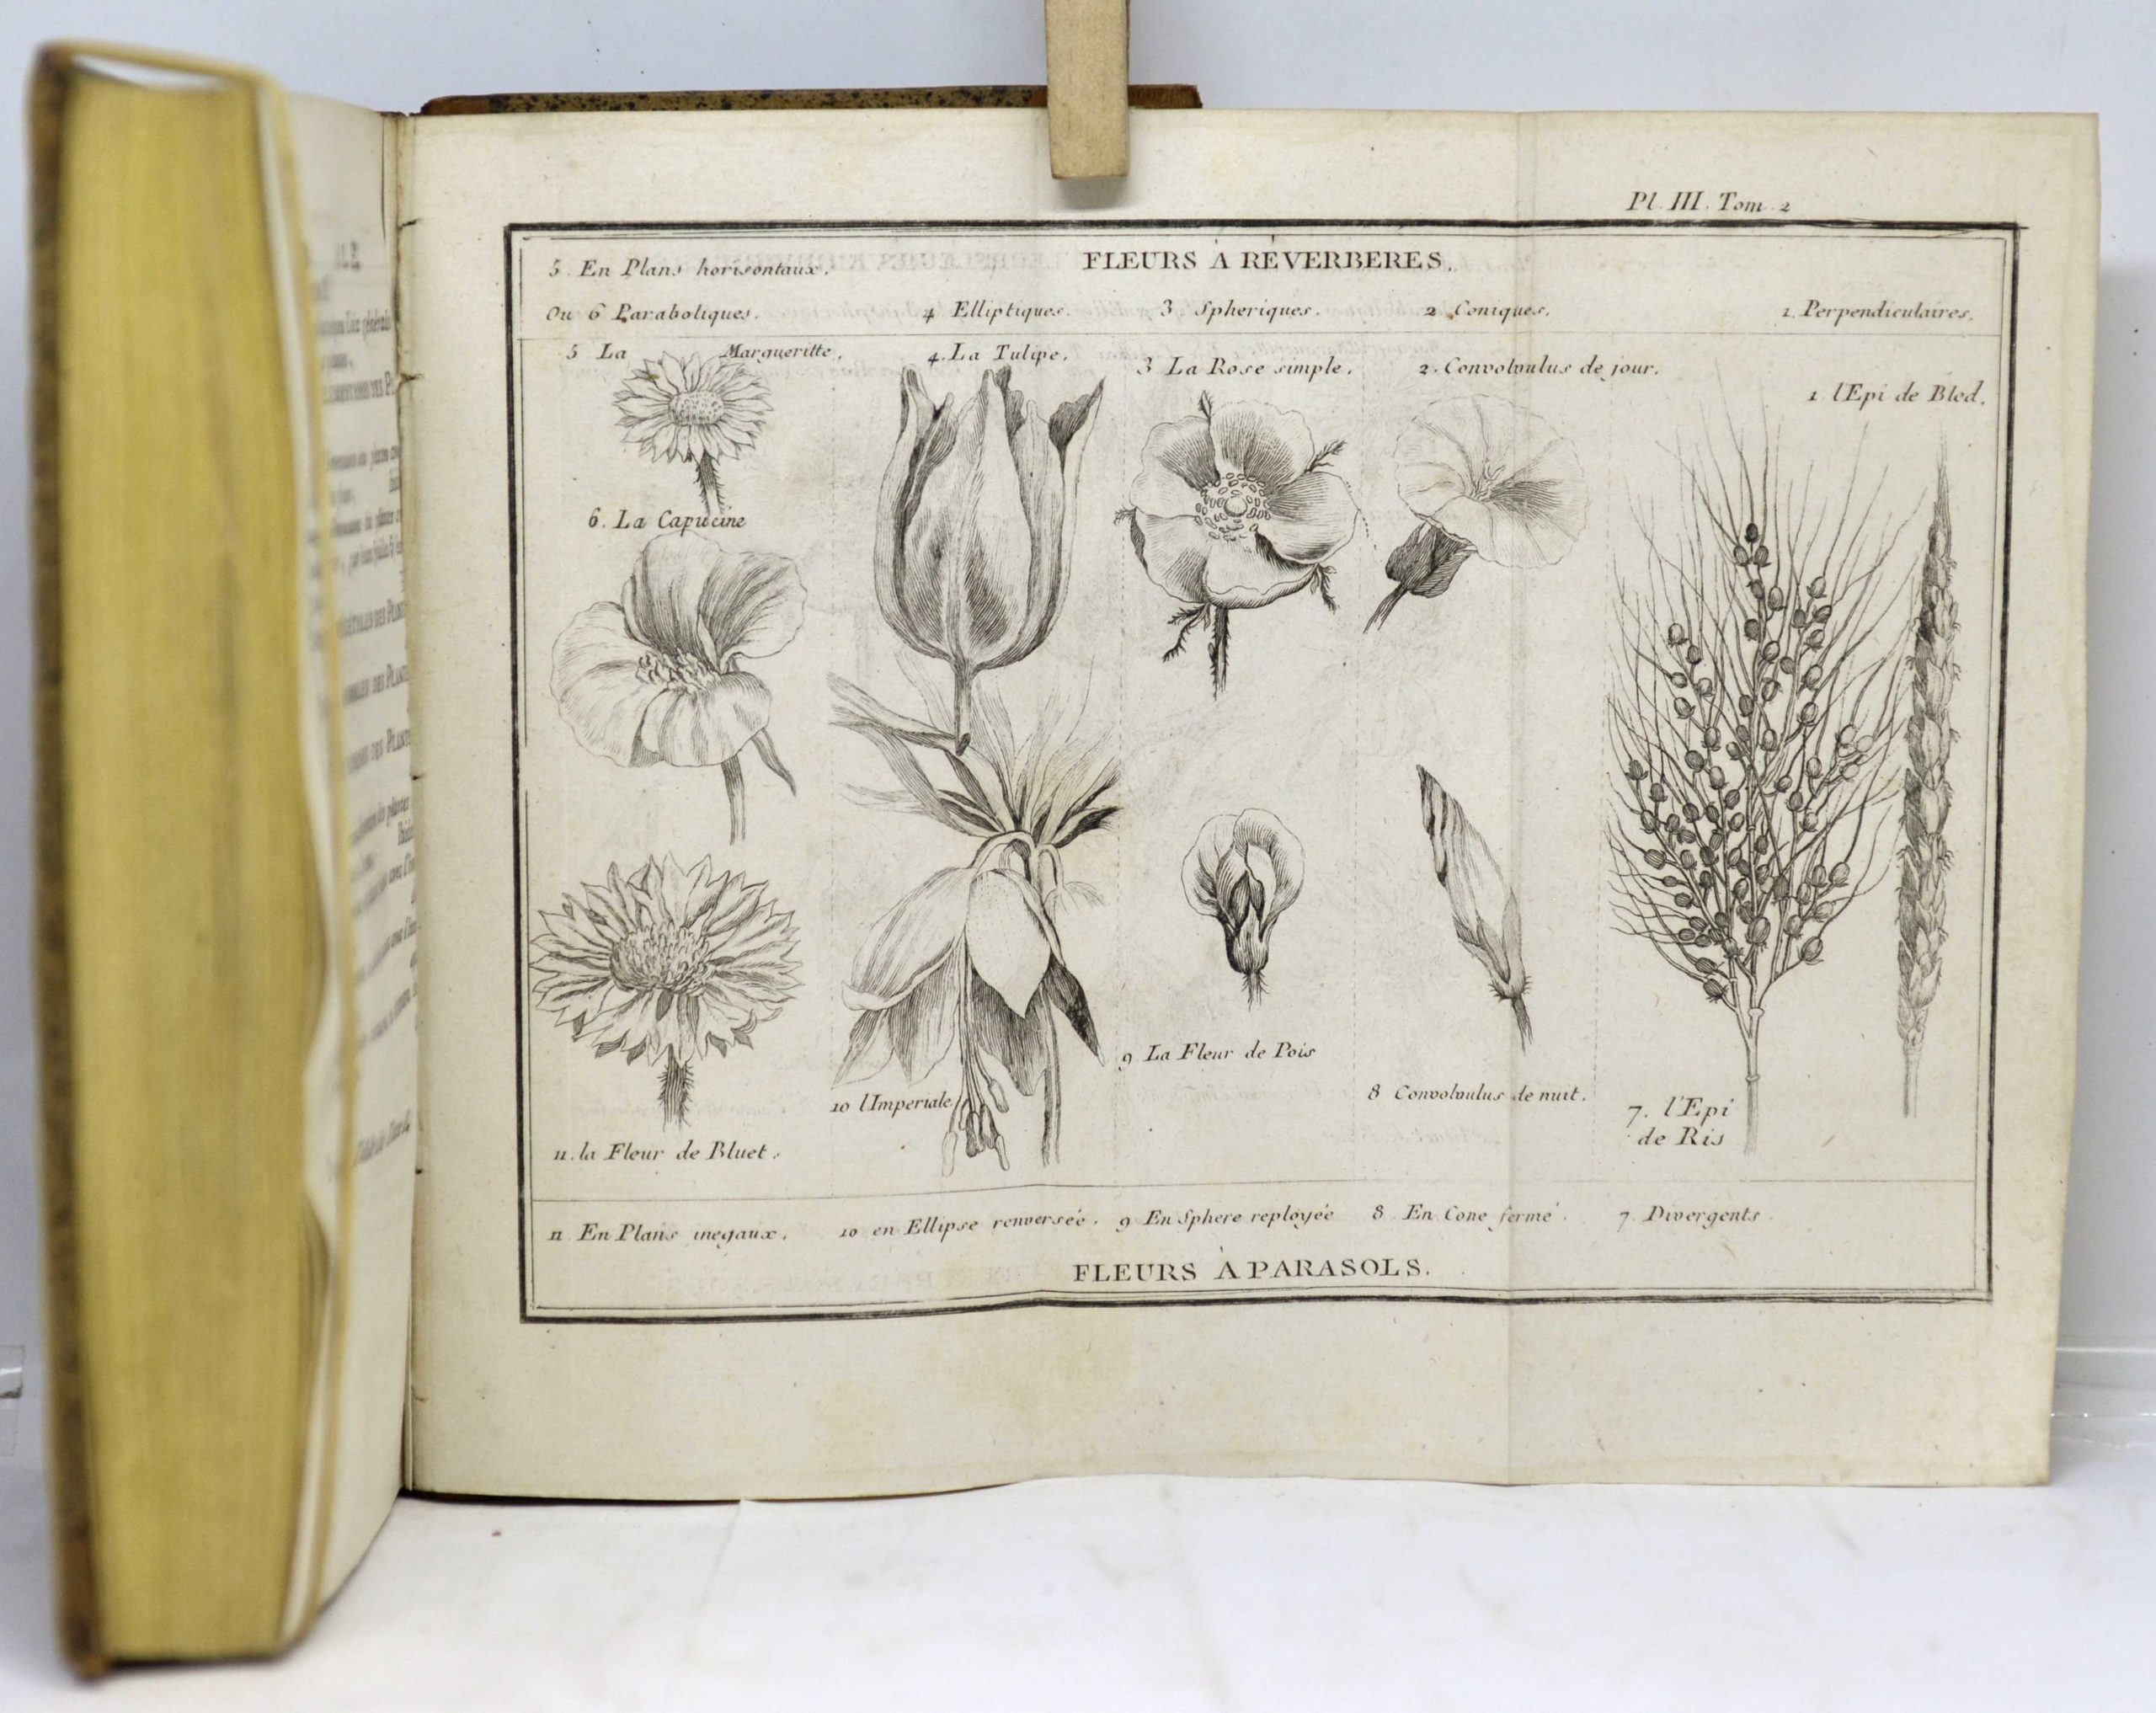 Pl. III. Tom. 2
FLEURS À RÉVERBERES.
5. En Plans horisontaux.
Ou 6 Paraboliques.
4 Elliptiques.
3. Spheriques.
2 Coniques.
1. Perpendiculaires.
5 La Margueritte.
4. La Tulipe.
3 La Rose simple.
2. Convolvulus de jour.
1 l'Epi de Bled.
6. La Capucine
9 La Fleur de Pois
10 l'Imperiale
8 Convolvulus de nuit.
7. l'Epi
de Ris
11. la Fleur de Bluet.
11 En Plans inegaux.
10 en Ellipse renversée.
9 En Sphere reployée
8. En Cone fermé.
7. Divergents.
FLEURS À PARASOLS.